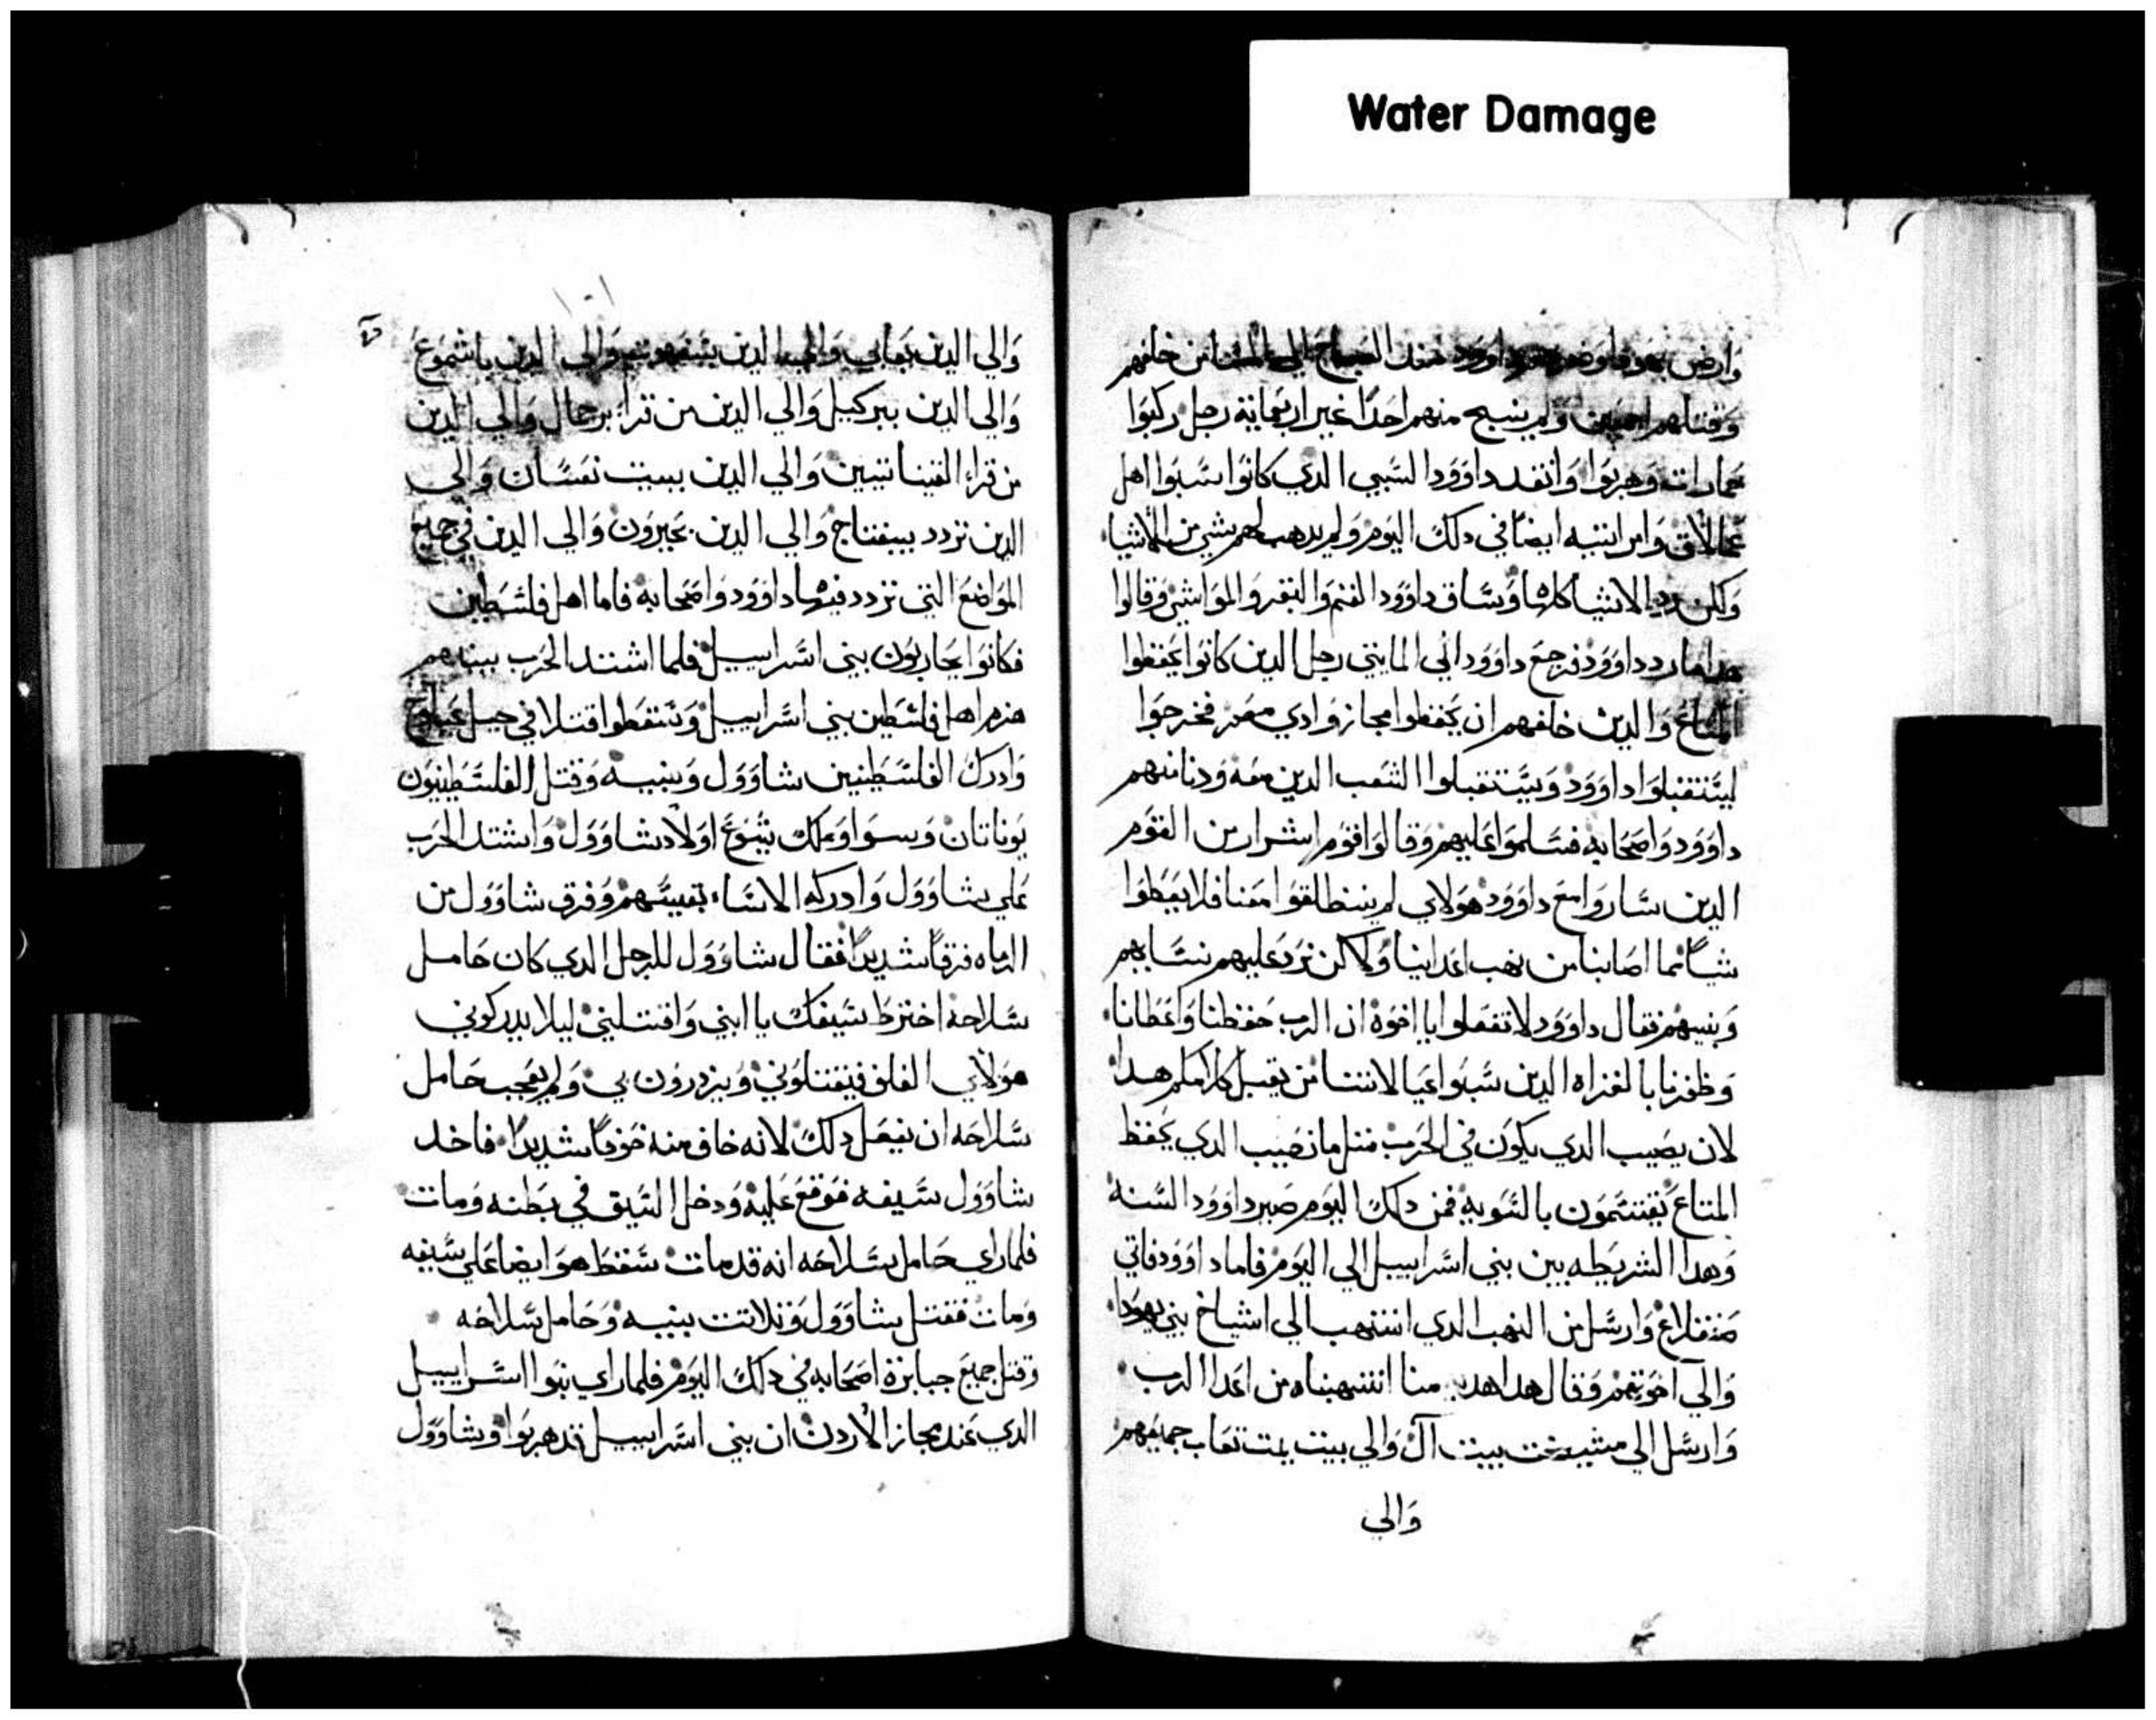 Water Damage
وارض يهودا وضربهم داوود منذ الصباح الي المسا من خلفهم
وقتلهم اجمعين ولم ينج منهم احدًا غير اربعماية رجل ركبوا
حمارات وهربوا وانقد داوود السبي الدي كانوا سبوا اهل
عمالاق وامراتيه ايضًا في دلك اليوم ولم يدهب لهم شي من الاشيا
ولكن رد الاشيا كلها وساق داوود الغنم والبقر والمواشي وقالوا
هدا ما رد داوود فرجع داوود الي المايتي رجل الدين كانوا يحفظوا
المتاع والدين خلفهم ان يحفظوا مجاز وادي معر فخرجوا
ليستقبلوا داوود ويستقبلوا الشعب الدين معه ودنا منهم
داوود واصحابه فسلموا عليهم وقالوا قوم اشرار من القوم
الدين ساروا مع داوود هولاي لم ينطلقوا معنا فلا يعطوا
شيًا مما اصابنا من نهب اعداينا ولاكن نرد عليهم نسايهم
وبنيهم فقال داوود لا تفعلوا يا اخوة ان الرب حفظنا واعطانا
وظفرنا بالغزاه الدين سبوا عيالاتنا من يقبل كلامكم هدا
لان نصيب الدي يكون في الحرب مثل ما نصيب الدي يحفظ
المتاع يقتسمون بالسويه فمن دلك اليوم صير داوود السنه
وهدا الشريطه بين بني اسراييل الي اليوم فاما داوود فاتي
صنقلاغ وارسل من النهب الدي انتهب الي اشياخ بني يهودا
والي اخوتهم وقال هدا هديه منا انتهبناه من اعدا الرب
وارسل الي مشيخت بيت آل والي بيت يمت تعاب جميعهم
والي
١٠١
والي الدين والي الدين والي الدين باشموع
والي الدين ببركيل والي الدين من ترا برحمال والي الدين
من قرا القيناتيين والي الدين ببيت نعسان والي
الدين تردد ببيفتاح والي الدين بحبرون والي الدين في جميع
المواضع التي تردد فيها داوود واصحابه فاما اهل فلسطين
فكانوا يحاربون بني اسراييل فلما اشتد الحرب بينهم
هزم اهل فلسطين بني اسراييل وسقطوا قتلا في جبل
وادرك الفلسطينين شاوول وبنيه وقتل الفلسطينيون
يوناتان وسوا وملك يشوع اولاد شاوول واشتد الحرب
علي شاوول وادركه الانشاء بقسيهم وفرق شاوول من
الرماه فرقًا شديدًا فقال شاوول للرجل الدي كان حامل
سلاحه اخترط سيفك يا ابني واقتلني ليلا يدركوني
هولاي الغلف فيقتلوني ويزدرون بي ولم يعجب حامل
سلاحه ان يفعل دلك لانه خاف منه خوفًا شديدًا فاخد
شاوول سيفه فوقع عليه ودخل السيف في بطنه ومات
فلما راي حامل سلاحه انه قد مات سقط هو ايضا علي سيفه
ومات فقتل شاوول وتلاتت بنيه وحامل سلاحه
وقتل جميع جبابرة اصحابه في دلك اليوم فلما راي بنوا اسراييل
الدي عند مجاز الاردن ان بني اسراييل قد هربوا وشاوول